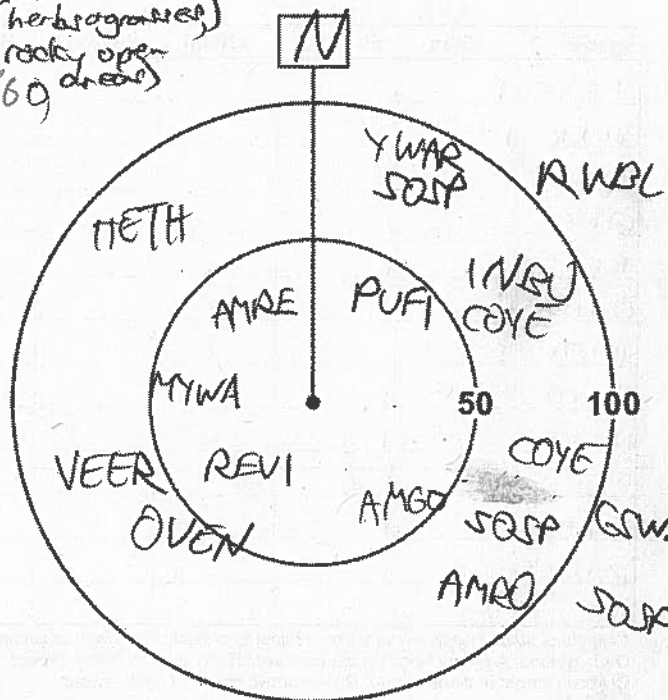 herbs & grasses,)
rocky open
60 areas)
N
YWAR
SOSP
RWBL
HETH
INBU
COYE
AMRE
PUFI
MYWA
50
100
COYE
VEER
REVI
AMGO
SOSP
GSWA
OVEN
AMRO
SOSP